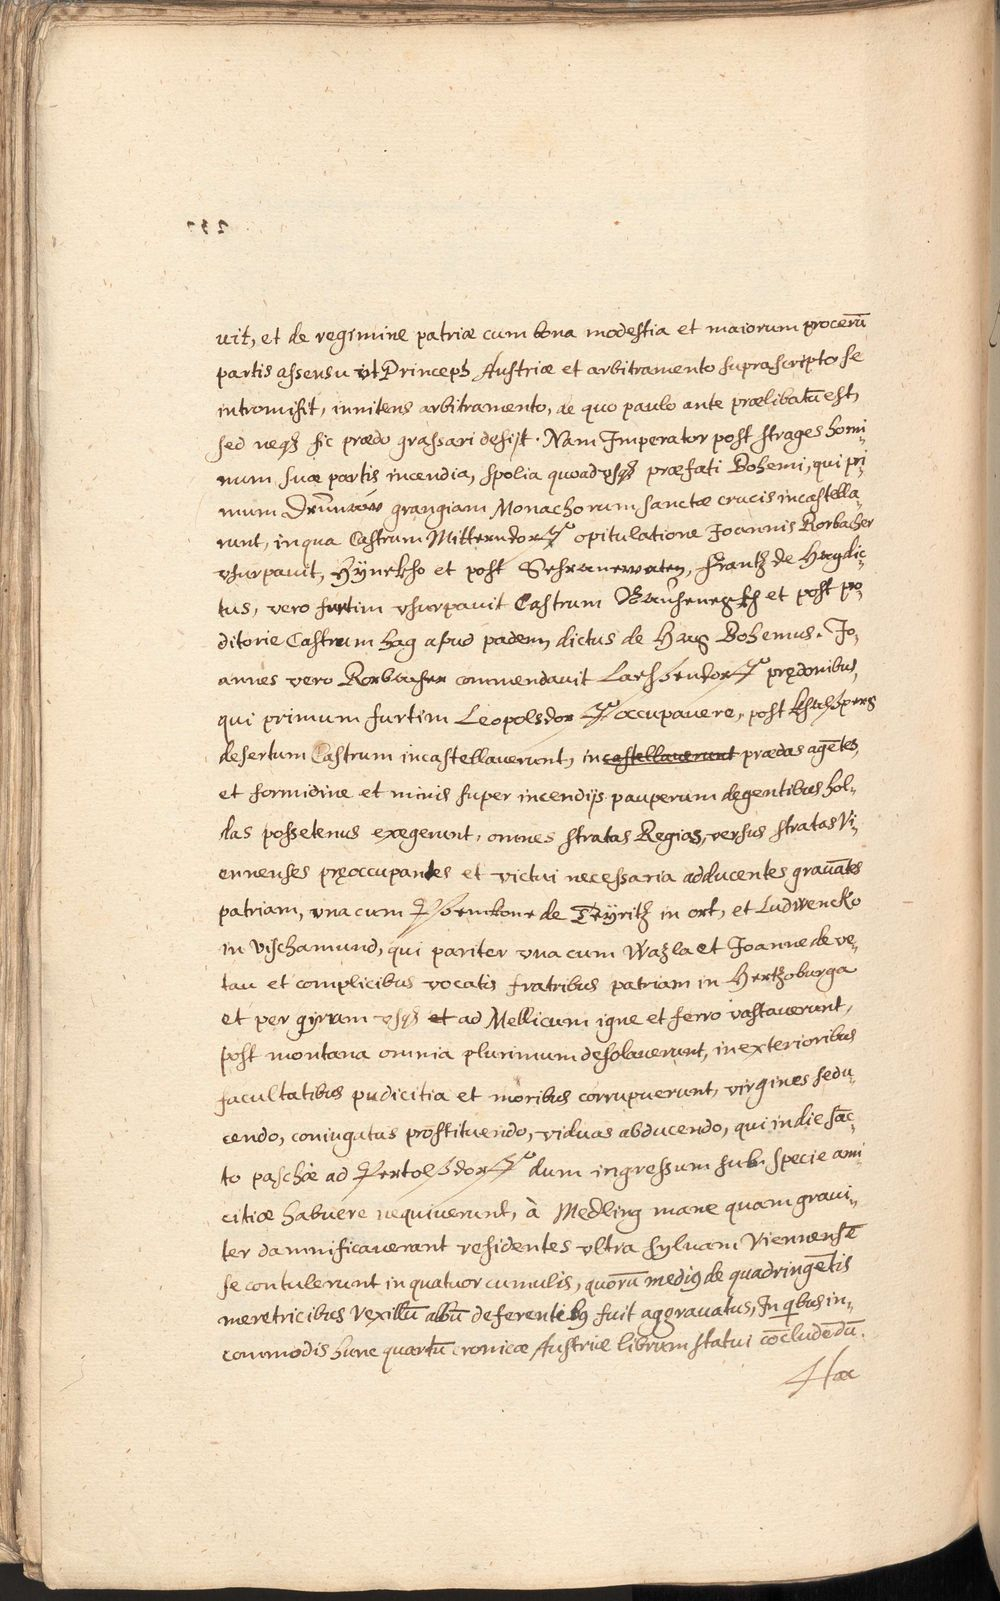 uit, et de regimine patriæ cum bona modestia et maiorum procerū
partis assensu vt Princeps Austriæ et arbitramento suprascripto se
intromisit, innitens arbitramento, de quo paulo ante prælibatū est,
sed neqȝ sic prædo grassari desijt. Nam Imperator post strages homi„
num suæ partis incendia, spolia quoad vsqȝ præfati Bohemi, qui pri„
mum grangiam Monachorum sanctæ crucis incastella„
runt, in qua Castrum Mitterndorff opitulatione Joannis Rorbacher
vsurpauit, Hÿnekho et post Frantz de Hag dic„
tus, vero furtim vsurpauit Castrum et post pro„
ditorie Castrum hag apud padem, dictus de Hag Bohemus. Jo„
annes vero Rorbacher commendauit prędonibus,
qui primum furtim Leopolsdorff occupauere, post
desertum Castrum incastellauerunt, incastellauerunt prædas agētes,
et formidine et minis super incendijs pauperum degentibus hol„
das possetenus exegerunt, omnes stratas Regias, versus stratas Vi„
ennenses pręoccupantes et victui necessaria adducentes grauātes
patriam, vna cum de Teÿritz in ort, et Ludwencko
in Vischamund, qui pariter vna cum Wazla et Joanne de ve„
tau et complicibus vocatis fratribus patriam in Hertzoburga
et per gÿrum vsqȝ et ad Mellicum igne et ferro vastauerunt,
post montana omnia plurimum desolauerunt, in exterioribus
facultatibus pudicitia et moribus corrupuerunt, virgines sedu„
cendo, coniugatas prostituendo, viduas abducendo, qui in die sāc„
to paschæ ad Pertolsdorff dum ingressum sub specie ami„
citiæ habuere nequiuerunt, à Medling mane quam graui„
ter damnificauerant residentes vltra syluam Viennensē
se contulerunt in quatuor cumulis, quorū mediꝰ de quadringētis
meretricibus Vexillū albū deferentibꝰ fuit aggrauatus, In qbus in„
commodis hunc quartū cronicæ Austriæ librum statui cōcludēdū.
Hæc